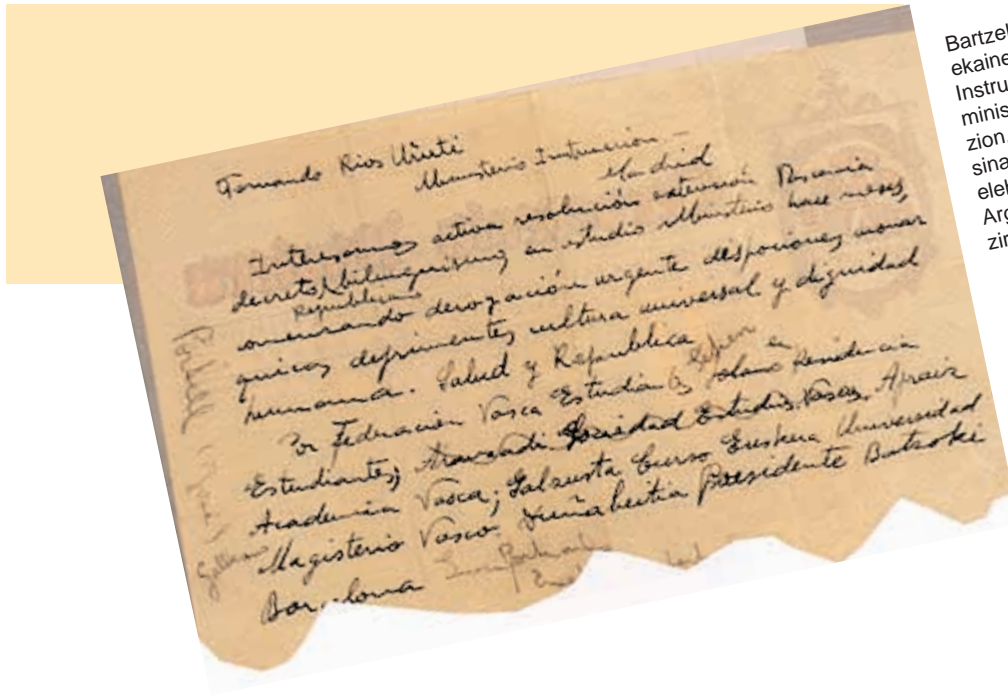 Fernando Rios Uriti
Ministerio Instrucción -
Madrid
Interesamos activa resolución extensión Vasconia
decreto bilinguismo en estudio Ministerio hace meses,
Republicano
derogación urgente disposiciones monar
quicas deprimentes cultura universal y dignidad
humana. Salud y Republica
Por Federación Vasca Estudiantes Solano Residencia
Estudiantes; Aranzadi Sociedad Estudios Vascos, Apraiz
Academia Vasca; Galzusta Curso Euskera Universidad
Magisterio Vasco. Zuñabeitia Presidente Batzoki
Barcelona
Bartzel
ekaine
Instru
minis
zion
sina
elel
Arg
zin